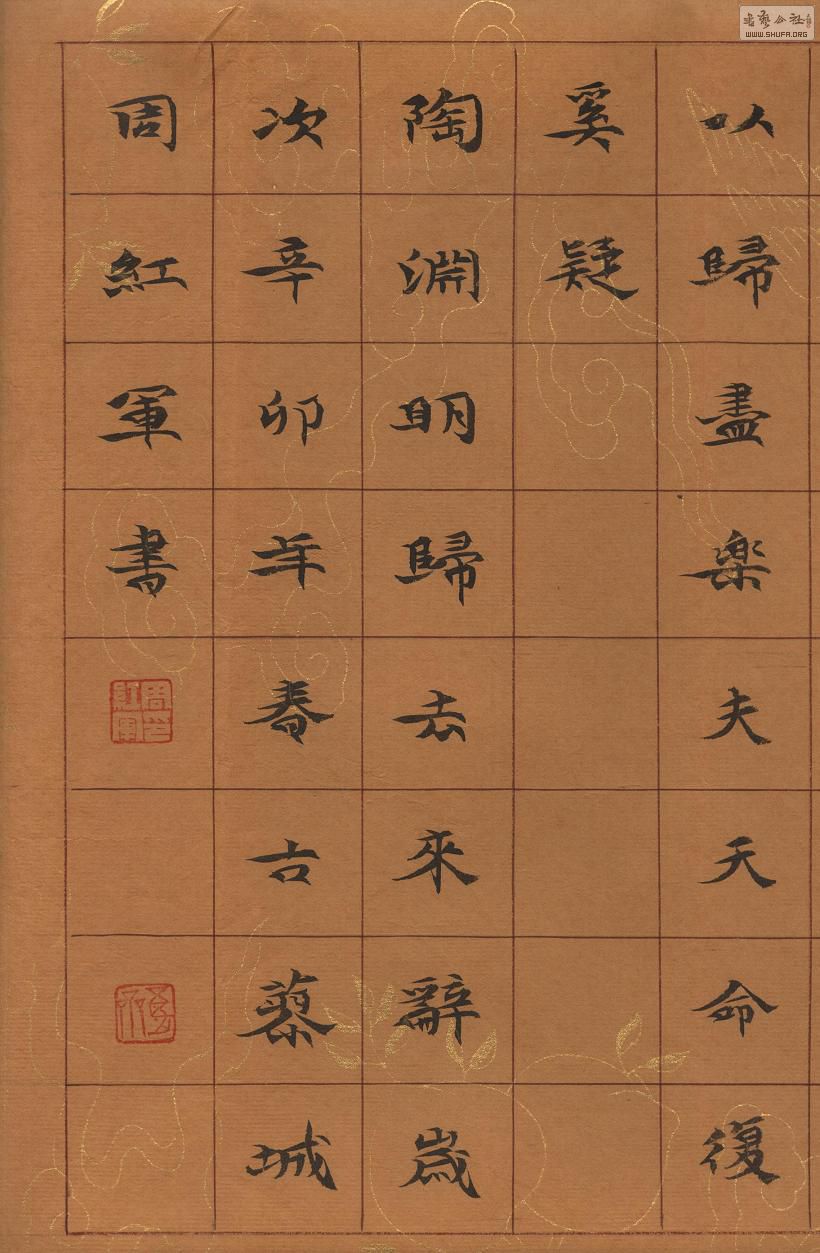 以歸盡楽夫天命復
奚疑
陶淵明歸去來辭歲
次辛卯年春古蔡城
周紅軍書
書藝公社
WWW.SHUFA.ORG